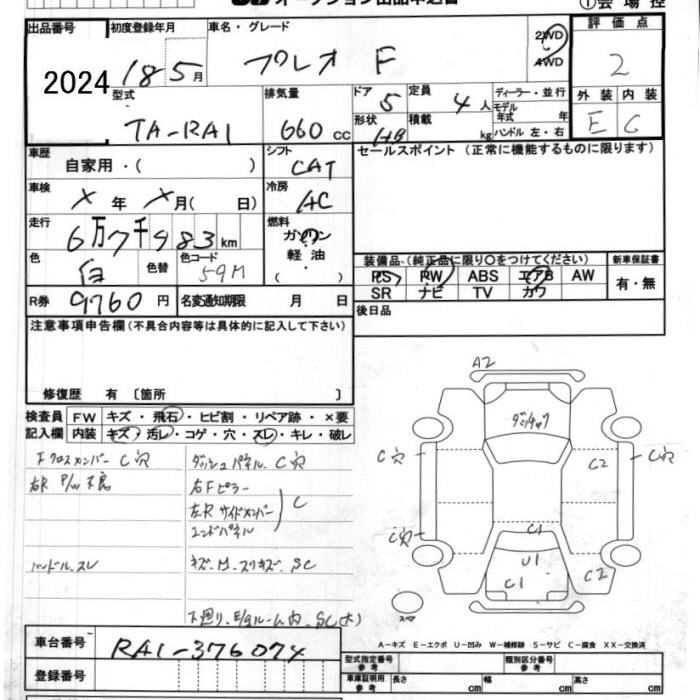 オークション出品申込書
①会場控
出品番号 初度登録年月 車名・グレード 評価点
2024 18 5月 プレオ F 2WD 4WD 2
型式 排気量 ドア 5 定員 4人 ディーラー・並行 外装 内装
TA-RA1 660cc 形状 HB 積載 kg モデル年式 年 ハンドル 左・右 E C
車歴 シフト セールスポイント (正常に機能するものに限ります)
自家用・( ) CAT
車検 冷房
X年 X月( 日) AC
走行 燃料
6万7千983km ガソリン
色 色替 色コード 軽油
白 59M ( )
装備品 (純正品に限り○をつけてください) 新車保証書
PS PW ABS エアB AW 有・無
SR ナビ TV カワ
R券 9760円 名変通知期限 月 日 後日品
注意事項申告欄(不具合内容等は具体的に記入して下さい)
修復歴 有 〔箇所 〕
検査員 FW キズ・飛石・ヒビ割・リペア跡・×要
記入欄 内装 キズ・汚レ・コゲ・穴・スレ・キレ・破レ
Fクロスメンバー C穴
右R P/W不良
ハンドル.スレ
ダッシュパネル C穴
右Fピラー
左R サイドメンバー C
エンドパネル
キズ.凹.スリキズ.SC
下廻り.E/gルーム内.SC(大)
A2
C穴 C2 C穴
C穴 C1
U1
C1 C2
スペア
A-キズ E-エクボ U-凹み W-補修跡 S-サビ C-腐食 XX-交換済
車台番号 RA1-376074
登録番号
型式指定番号 参考 類別区分番号 参考
車庫証明用 参考 長さ cm 幅 cm 高さ cm